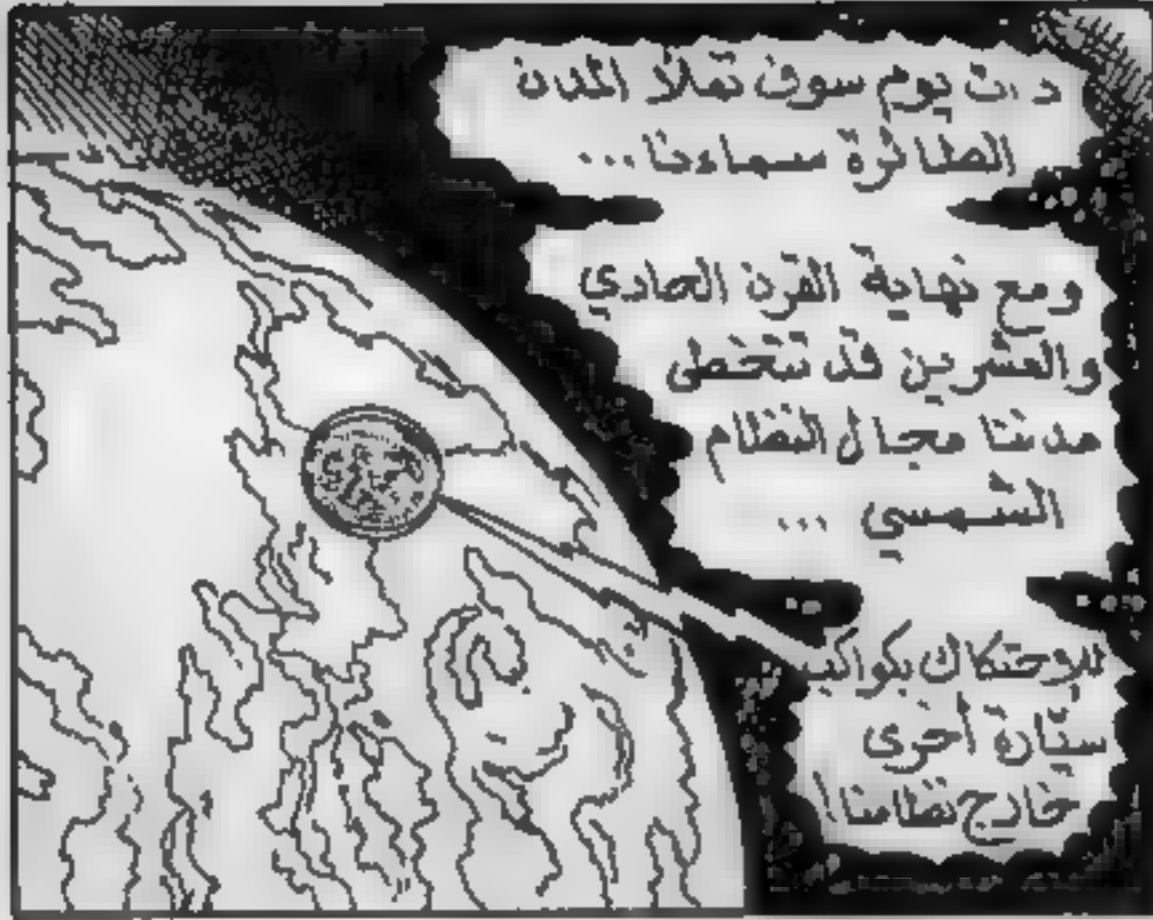 ذات يوم سوف تملأ المدن
الطائرة سماءنا...
ومع نهاية القرن الحادي
والعشرين قد تتخطى
مدننا مجال النظام
الشمسي ...
للإحتكاك بكواكب
سيّارة أخرى
خارج نظامنا!